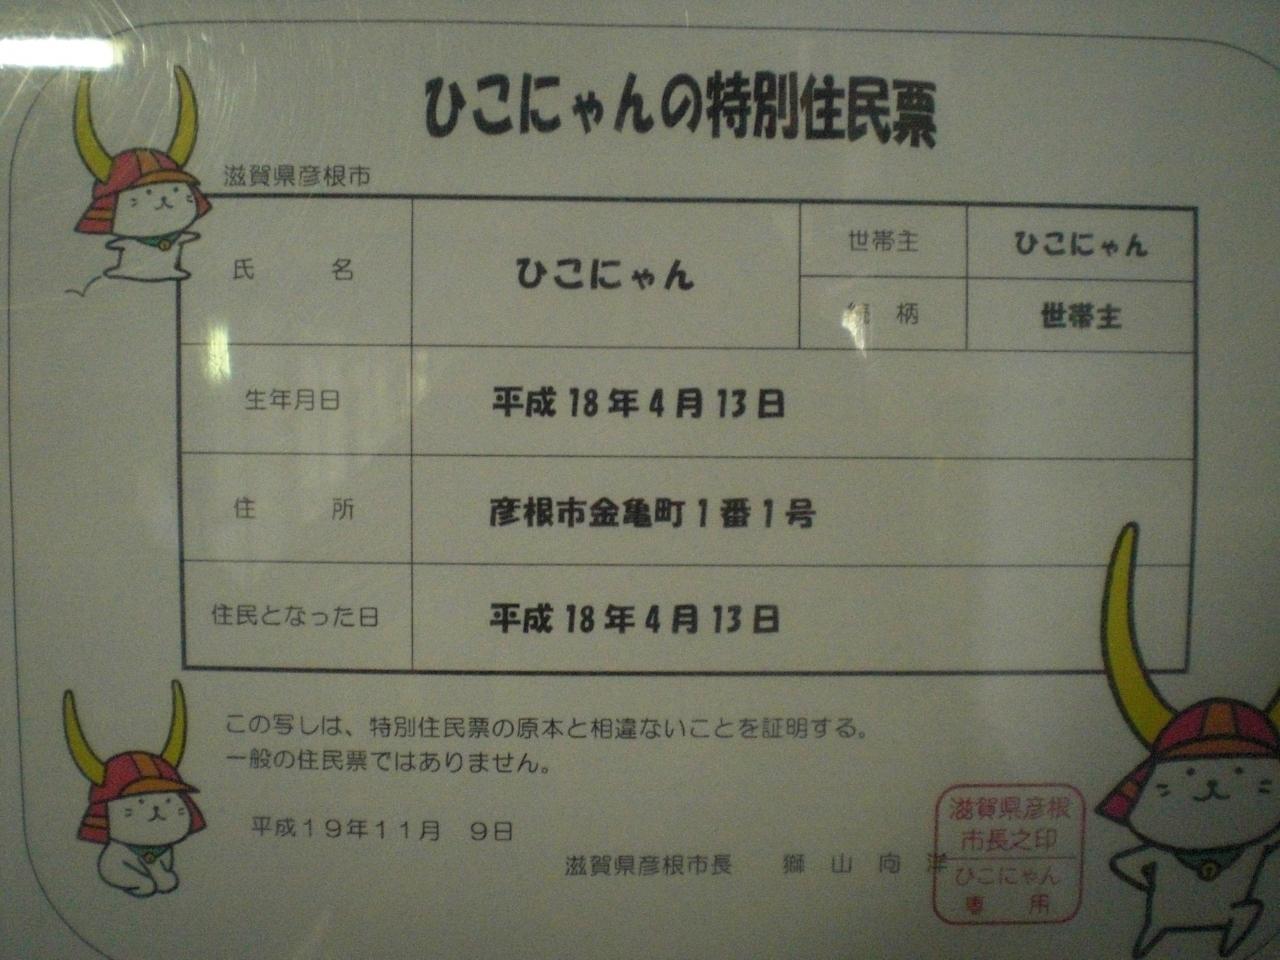 ひこにゃんの特別住民票
滋賀県彦根市
氏 名 ひこにゃん 世帯主 ひこにゃん
続 柄 世帯主
生年月日 平成18年4月13日
住 所 彦根市金亀町1番1号
住民となった日 平成18年4月13日
この写しは、特別住民票の原本と相違ないことを証明する。
一般の住民票ではありません。
平成19年11月 9日
滋賀県彦根市長 獅 山 向 洋
滋賀県彦根
市長之印
ひこにゃん
専 用